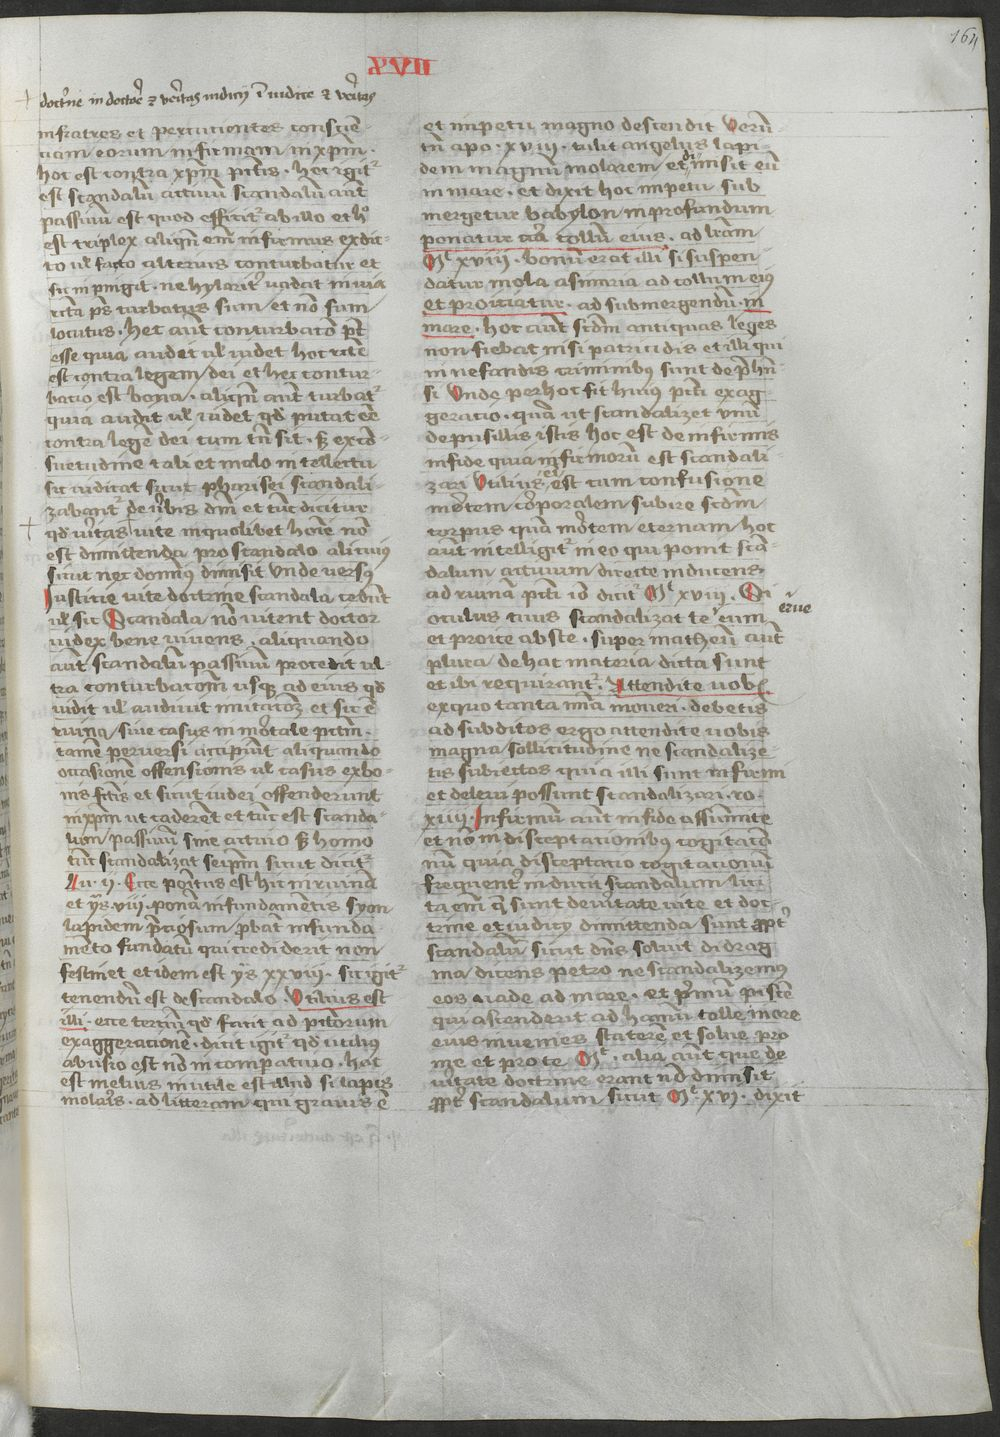 164
XVII
doctrine in doctore et veritas iudicij in iudice et veritas
in fratres et percutientes conscien-
tiam eorum infirmam in xp̄m
hoc est contra xp̄m p̄ctis . hec igit͛
est scandalū actiuū scandalū aūt
passiuum est quod efficit͛ ab illo et h͛
est triplex aliqn̄ em̄ infirmus ex dic-
to ul facto alterius conturbatur et
sic inpingit . ne hylarit͛ uadat in uia
 turbatus sum et non sum
locutus . hec aūt conturbatō pōt
esse quia audet ul uidet hoc
est contra legem dei et hec contur-
batio est bona . aliqn̄ aūt turbat͛
quia audit ul uidet qd̄ putat eē
contra legē dei cum tn̄ sit . s; ex cō-
suetudine tali et malo intellectu
sic iudicat sicut pharisei scandali-
zabant͛ de ūbis dn̄i et tūc dicitur
qd̄ ūitas uite in quolibet hoīe nō
est dimittenda pro scandalo alicuiꝰ
sicut nec dominꝰ dimisit unde uersꝰ
Iusticie uite doctrine scandala
ul sic Scandala nō uitent doctor
iudex bene uiuens . aliquando
aūt scandalū passiuū procedit ul-
tra conturbacōm usq; ad eius qd̄
uidit ul audiuit imitacōȝ et sic ē
ruina siue casus in mortale pctm̄ .
tamē peruersi accipiūt aliquando
occasionē offensionis ul casus ex bo-
nis fctīs et sicut iudei offenderunt
in xpm̄ ut caderēt et tūc est scanda-
lum passiuū sine actiuo s; homo
tūc scandalizat seipm̄ sicut dicit͛
Lu . ij . Ecce positus est hic in ruinā
et ys . viij . ponā in fundamētis syon
lapidem p̄ciosum p̄batū in funda
mēto fundatū qui crediderit non
festinet et idem est ys xxviij . sic igit͛
tenendū est de scandalo . Vtilius est
illi . ecce tertiū qd̄ facit ad pctōrum
exaggerationē . dicit igit͛ qd̄ utiliꝰ
abusio est nō in comparatiuo . hoc
est melius inutile est illud si lapis
molaris . ad litteram qui grauis ē
et inpetu magno descendit Verū-
tn̄ apo . xviij . tulit angelus lapi-
dem magnū molarem et misit eū
in mare . et dixit hoc inpetu sub
mergetur babylon in profundum
ponatur circa collū eius . ad lrām
Mͭ xviij . bonū erat illi si suspen
datur mola asinaria ad collum eiꝰ
et proiciatur . ad submergendū . in
mare . hoc aūt scdm̄ antiquas leges
non fiebat nisi patricidis et illi qui
in nefandis criminibus sunt
si Vnde per hoc fit huius pcti exag
geratio . quā ut scandalizet unū
de pusillis istis hoc est de infirmis
in fide quia infirmorū est scandali-
zari Vtilius ei est cum confusione
mortem corporalem subire scdm̄
corpus quā mortem eternam . hoc
aūt intelligit͛ in eo qui ponit scā-
dalum actiuum directe inducens
ad ruinā pcti iō dicit͛ Mͭ xviij . Si
oculus tuus scandalizat te eum
erue
et proice abs te . super matheū aūt
plura de hac materia dicta sunt
et ibi requirant͛ . Attendite uob̄
ex quo tanta mīa moueri debetis
ad subditos ergo attendite uobis
magna sollicitudine ne scandalize-
tis subiectos quia illi sunt infirmi
et de leui possunt scandalizari . ro .
xiiij . Infirmū aūt in fide assumite
et nō in disceptationibus cogitatō
nū quia disceptatio cogitationū
frequent͛ inducit scandalum lici
ta em̄ q̄ sunt de uitate uite et doc-
trine et iudicij dimittenda sunt ꝓpt͛
scandalū sicut dn̄s soluit didrag
ma dicens petro ne scandalizemꝰ
eos uade ad mare . et p̄mū piscē
qui ascenderit ad hamū tolle in ore
eius inuenies staterē et solue pro
me et pro te Mͭ . alia aūt que de
ūitate doctrine erant nō dimisit
ꝓpt͛ scandalum sicut Mͭ xvj . dixit